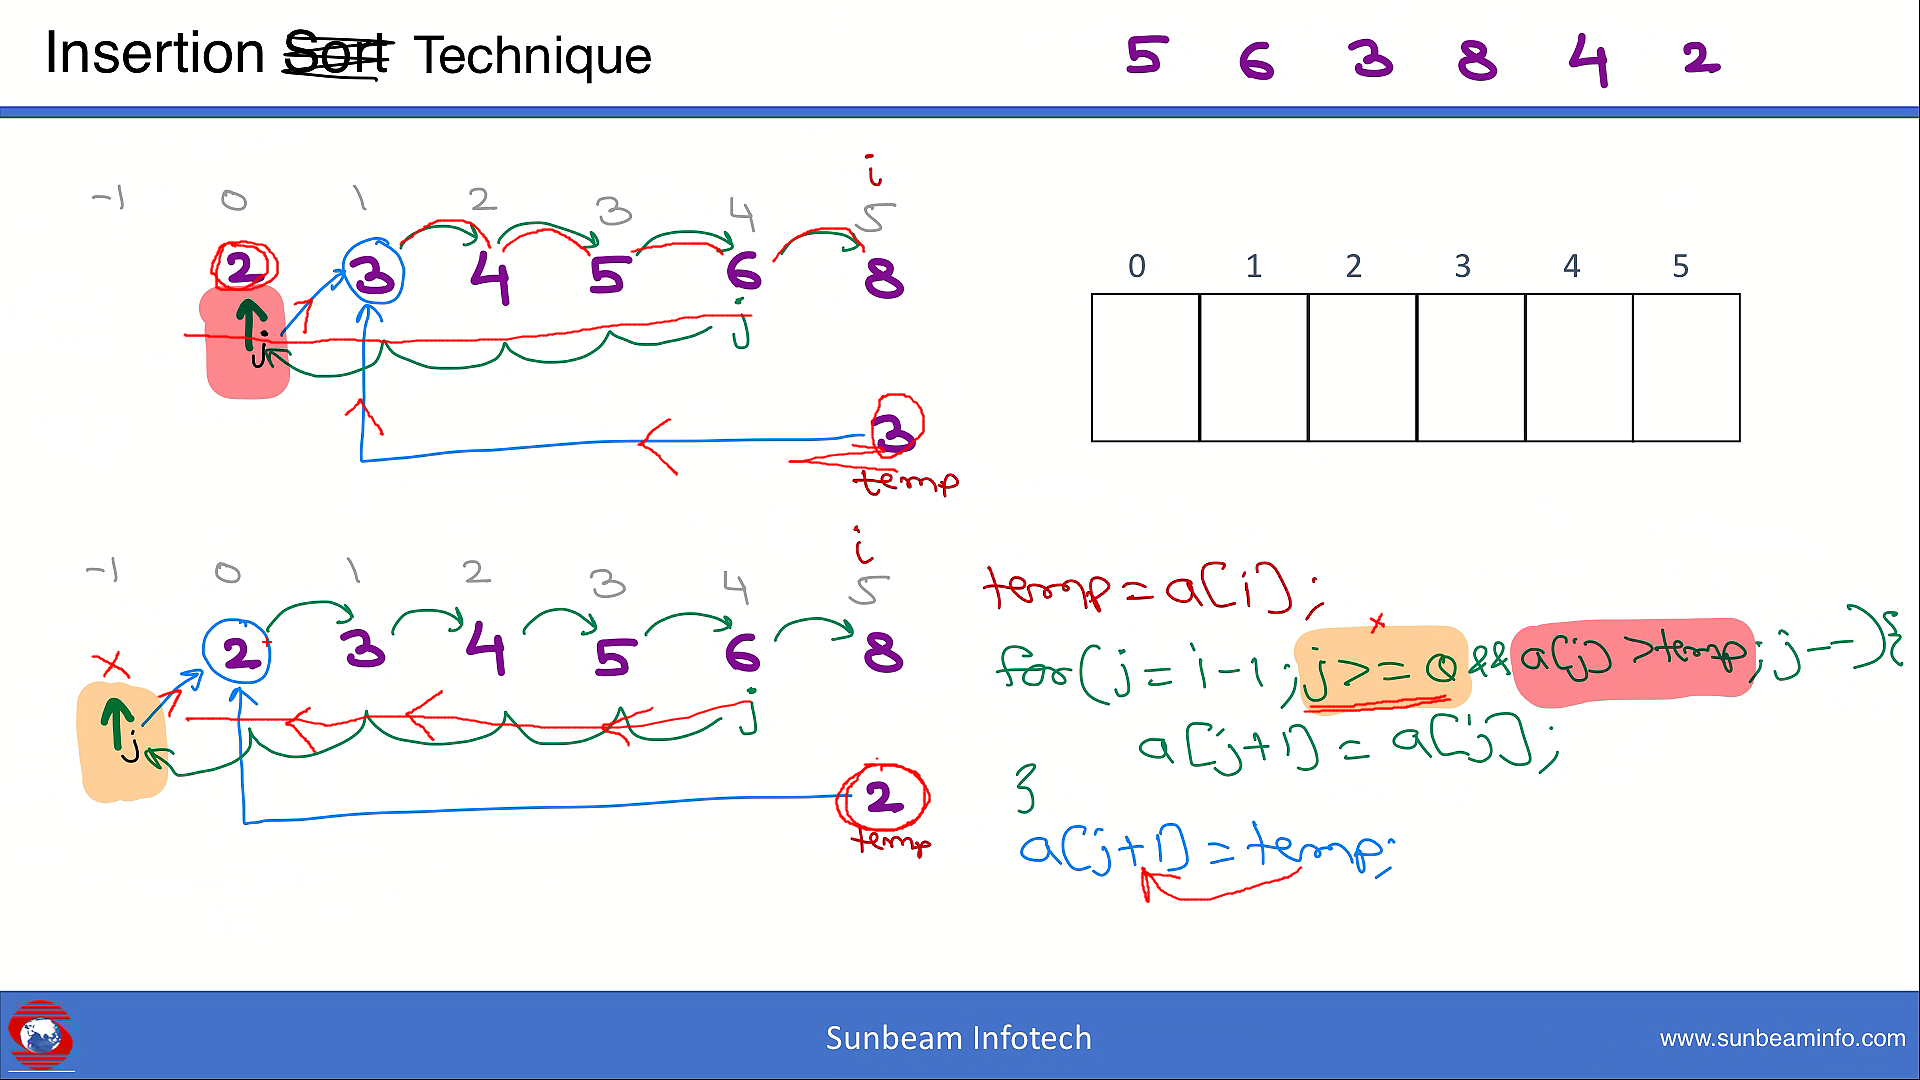 Insertion Sort Technique
5 6 3 8 4 2
i
-1 0 1 2 3 4 5
2 3 4 5 6 8
j j
3
temp
0 1 2 3 4 5
i
-1 0 1 2 3 4 5
x 2 3 4 5 6 8
j j
2
temp
temp = a[i];
x
for(j = i-1; j>=0 && a[j] >temp; j--){
a[j+1] = a[j];
}
a[j+1] = temp;
Sunbeam Infotech
www.sunbeaminfo.com